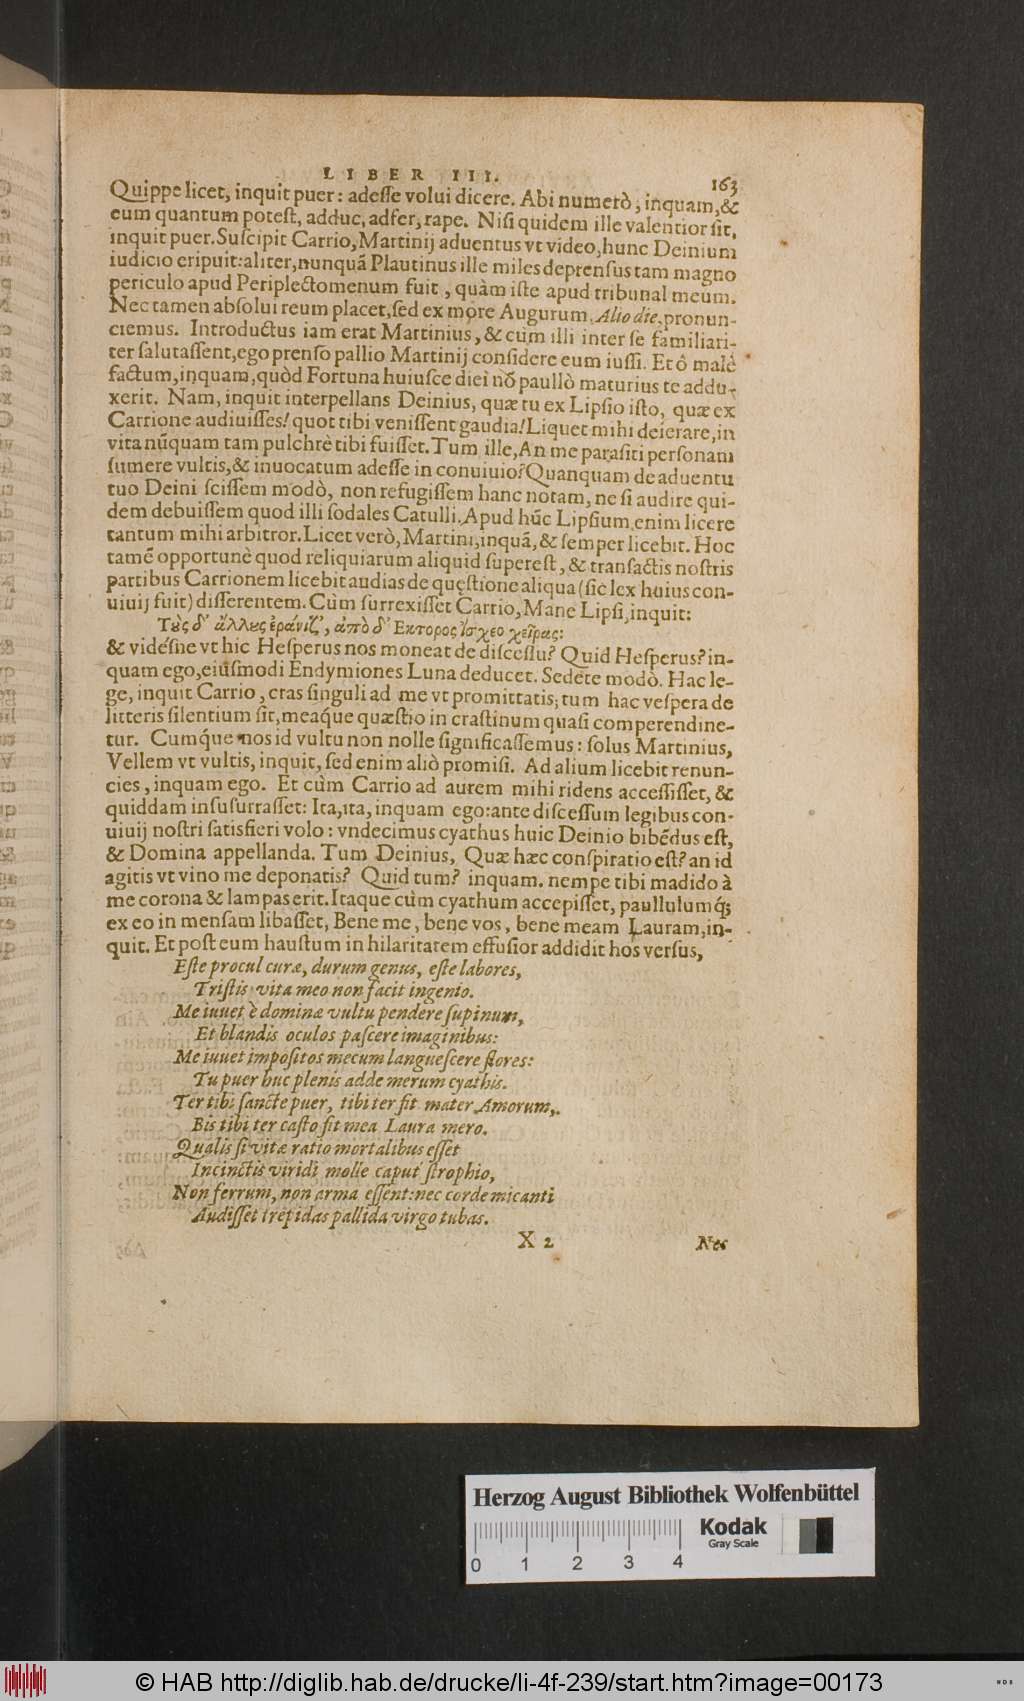 LIBER III.
163
Quippe licet, inquit puer: adesse volui dicere. Abi numerò, inquam, &
eum quantum potest, adduc, adfer, rape. Nisi quidem ille valentior sit,
inquit puer. Suscipit Carrio, Martinij aduentus vt video, hunc Deinium
iudicio eripuit: aliter, nunquã Plautinus ille miles deprensus tam magno
periculo apud Periplectomenum fuit, quàm iste apud tribunal meum.
Nec tamen absolui reum placet, sed ex more Augurum, Alio die, pronun-
ciemus. Introductus iam erat Martinius, & cùm illi inter se familiari-
ter salutassent, ego prenso pallio Martinij considere eum iussi. Et ô malè
factum, inquam, quòd Fortuna huiusce diei nõ paullò maturius te addu-
xerit. Nam, inquit interpellans Deinius, quæ tu ex Lipsio isto, quæ ex
Carrione audiuisses! quot tibi venissent gaudia! Liquet mihi deierare, in
vita nũquam tam pulchrè tibi fuisset. Tum ille, An me parasiti personam
sumere vultis, & inuocatum adesse in conuiuio? Quanquam de aduentu
tuo Deini scissem modò, non refugissem hanc notam, ne si audire qui-
dem debuissem quod illi sodales Catulli. Apud hũc Lipsium enim licere
tantum mihi arbitror. Licet verò, Martini, inquã, & semper licebit. Hoc
tamẽ opportunè quod reliquiarum aliquid superest, & transactis nostris
partibus Carrionem licebit audias de quęstione aliqua (sic lex huius con-
uiuij fuit) disserentem. Cùm surrexisset Carrio, Mane Lipsi, inquit:
Τοὺς δ' ἄλλους ἐράνιζ', ἀπὸ δ' Εκτορος ἴσχεο χεῖρας:
& vidésne vt hic Hesperus nos moneat de discessu? Quid Hesperus? in-
quam ego, eiúsmodi Endymiones Luna deducet. Sedete modò. Hac le-
ge, inquit Carrio, cras singuli ad me vt promittatis; tum hac vespera de
litteris silentium sit, meaq́ue quæstio in crastinum quasi comperendine-
tur. Cumq́ue nos id vultu non nolle significassemus: solus Martinius,
Vellem vt vultis, inquit, sed enim aliò promisi. Ad alium licebit renun-
cies, inquam ego. Et cùm Carrio ad aurem mihi ridens accessisset, &
quiddam insusurrasset: Ita, ita, inquam ego: ante discessum legibus con-
uiuij nostri satisfieri volo: vndecimus cyathus huic Deinio bibẽdus est,
& Domina appellanda. Tum Deinius, Quæ hæc conspiratio est? an id
agitis vt vino me deponatis? Quid tum? inquam. nempe tibi madido à
me corona & lampas erit. Itaque cùm cyathum accepisset, paullulumq́;
ex eo in mensam libasset, Bene me, bene vos, bene meam Lauram, in-
quit. Et post eum haustum in hilaritatem effusior addidit hos versus,
Este procul curæ, durum genus, este labores,
Tristis vita meo non facit ingenio.
Me iuuet è dominæ vultu pendere supinum,
Et blandis oculos pascere imaginibus:
Me iuuet impositos mecum languescere flores:
Tu puer huc plenis adde merum cyathis.
Ter tibi sancte puer, tibi ter sit mater Amorum,
Bis tibi ter casto sit mea Laura mero.
Qualis si vitæ ratio mortalibus esset
Incinctis viridi molle caput strophio,
Non ferrum, non arma essent: nec corde micanti
Audisset trepidas pallida virgo tubas.
X 2
Nec
Herzog August Bibliothek Wolfenbüttel
0 1 2 3 4
Kodak
Gray Scale
© HAB http://diglib.hab.de/drucke/li-4f-239/start.htm?image=00173